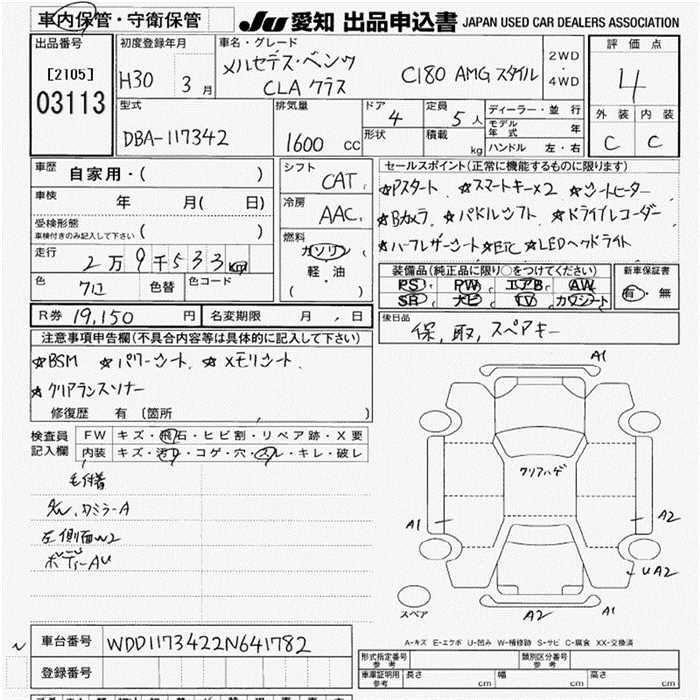 車内保管・守衛保管
JU 愛知 出品申込書 JAPAN USED CAR DEALERS ASSOCIATION
出品番号
[2105]
03113
初度登録年月
H30 3月
車名・グレード
メルセデス・ベンツ
CLA クラス
C180 AMG スタイル
2WD
・
4WD
評価点
4
外装 内装
C C
型式
DBA-117342
排気量
1600 cc
ドア 4
形状
定員 5人
積載 kg
ディーラー・並行
モデル年式 年
ハンドル 左・右
車歴 自家用・( )
車検 年 月( 日)
受検形態
車検付きのみ記入して下さい ( )
走行 2万9千533km
色 色替 色コード
シフト CAT
冷房 AAC
燃料
ガソリン
軽・油
( )
セールスポイント(正常に機能するものに限ります)
☆Pスタート ☆スマートキー×2 ☆シートヒーター
☆Bカメラ ☆パドルシフト ☆ドライブレコーダー
☆ハーフレザーシート☆ETC ☆LEDヘッドライト
装備品(純正品に限り○をつけてください)
PS PW エアB AW
SR ナビ TV カワシート
新車保証書
有・無
R券 19,150円
名変期限 月 日
後日品
保, 取, スペアキー
注意事項申告欄(不具合内容等は具体的に記入して下さい)
☆BSM ☆パワーシート ☆メモリシート
☆クリアランスソナー
修復歴 有(箇所 )
検査員記入欄
FW キズ・飛石・ヒビ割・リペア跡・X要
内装 キズ・汚れ・コゲ・穴・スレ・キレ・破レ
毛付着
左側面W2
ボディーAU
A1
クリアハゲ
A1
A2
UA2
A2
A1
スペア
A-キズ E-エクボ U-凹み W-補修跡 S-サビ C-腐食 XX-交換済
車台番号 WDD1173422N641782
登録番号
形式指定番号 参考
類別区分番号 参考
車庫証明用 参考
長さ cm 幅 cm 高さ cm